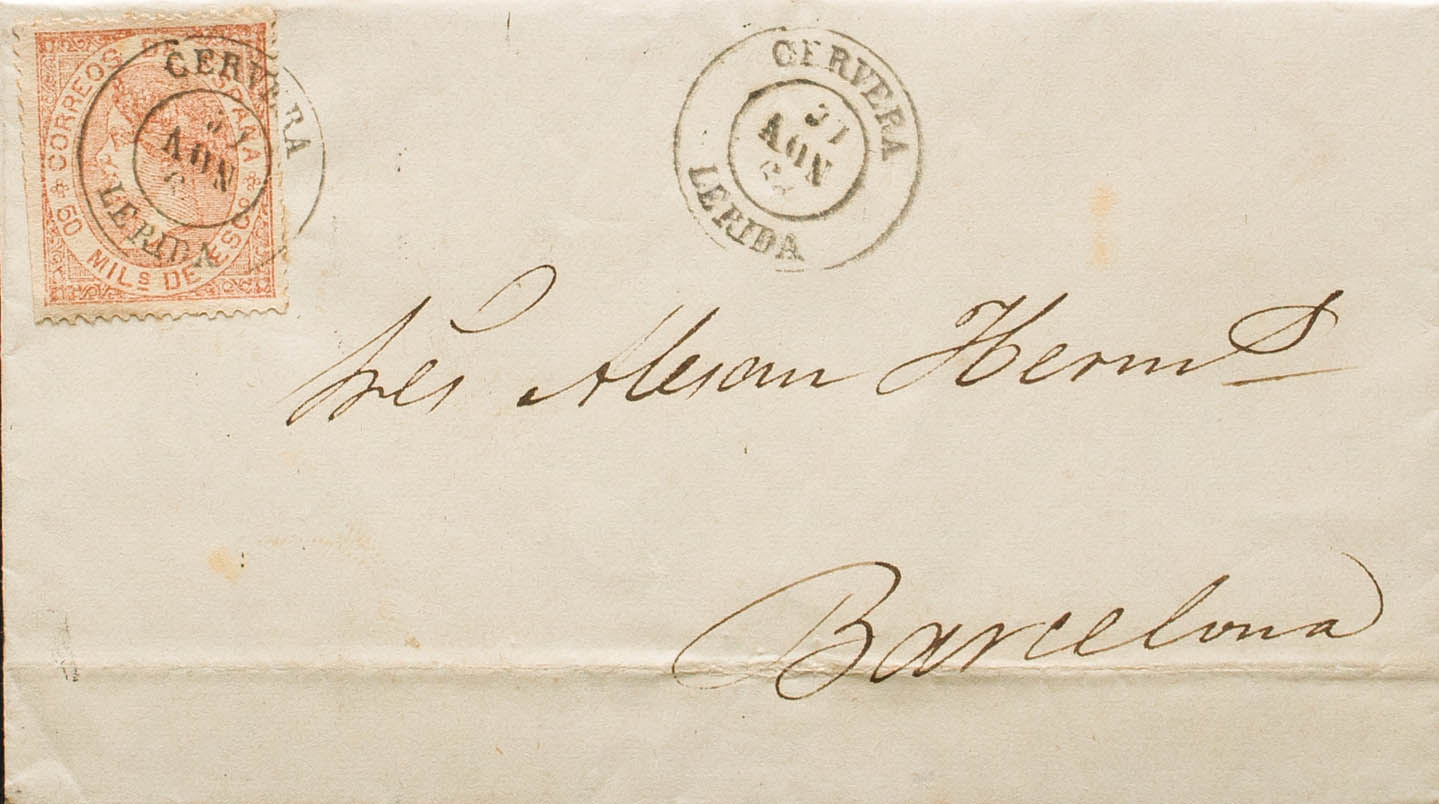 CORREOS DE ESPAÑA
50 MILS DE ESCO
CERVERA
LERIDA
CERVERA
31
LERIDA
Sres Alesan Herms
Barcelona